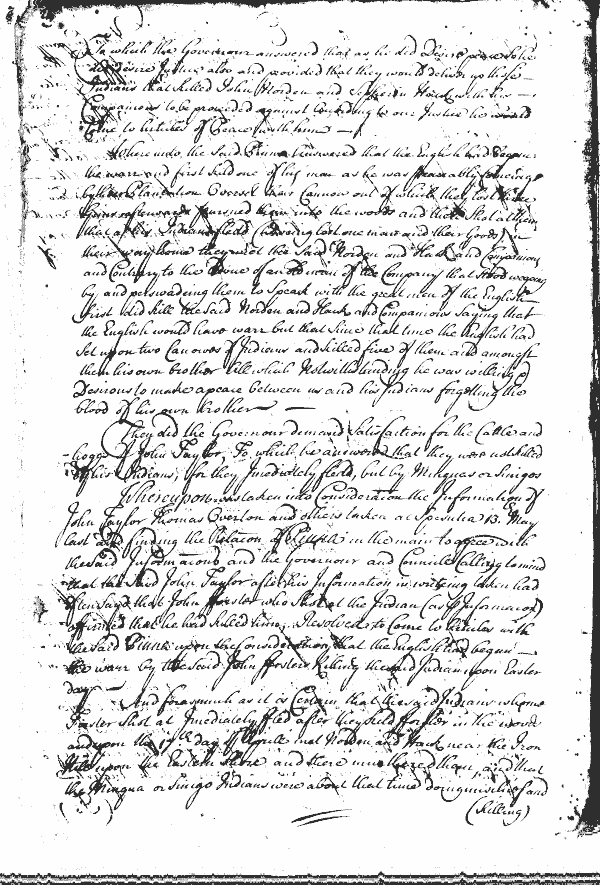 To which the Governour answered that as he did Desire peace so he
did desire Justice also and provided that they would deliver up those
Indians that killed John Norden and Hack with his
Companions to be proceeded against according to our Justice he would
Come to Articles of Peace with him
Whereunto the Said Pinna answered that the English had began
the warr and first killd one of his men as he was peaceably
by the Plantation Overses in their Cannow out of which they lost
afterwards pursued them into the woods and there Shot at them
that at his Indians fleld (Leaving lost one man and their Goods) in
their way home they met the Said Norden and Hack and Companions
and Contrary to the Advice of an old man of the Company that stood
by, and perswading them to Speak with the great men of the English
first did kill the Said Norden and Hack and Companions Saying that
the English would have warr but that Since that time the English had
Set upon two Canowes of Indians and killed five of them and amongst
them his own brother All which Notwithstanding he was willing &
Desirous to make a peace between us and his Indians forgetting the
blood of his own brother
They did the Governour demand Satisfaction for the Cattle and
hoggs of John Taylor, To which he answered that they were not killed
by his Indians, for they Imediately fled, but by Minquas or Sinigos
Whereupon was taken into Consideration the Information of
John Taylor Thomas Overton and others taken at Spesutia 13. May
last and finding the Relation of Pinna in the main to agree with
the said Informations and the Governour and Councill Calling to mind
that the Said John Taylor after his Information in writeing taken had
often Said that John fforster who Shot at the Indian (as p Informacon)
affirmed that he had killed him, Resolved to Come to Articles with
the Said Pinna upon the Consideration that the English had began
the warr by the Said John fforster killing the said Indian upon Easter
day
And forasmuch as it is Certain that the said Indians whome
Forster Shot at Imediately fled after they killd in the wood
and upon the day of Aprile met Norden and Hack near the Iron
Hill upon the Eastern Shore and there murthered them, and that
the Minqua or Sinigo Indians were about that time doing mischief and
(Killing)